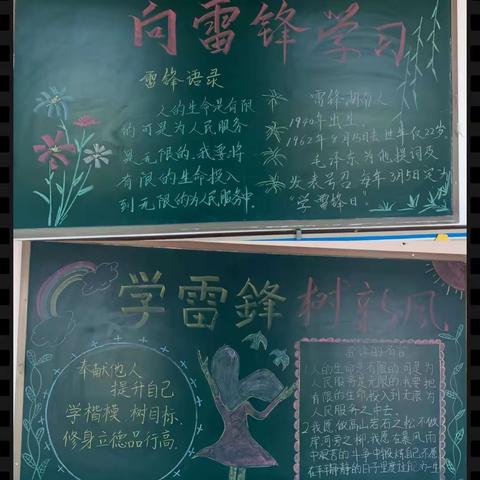 向雷锋学习
雷锋语录
人的生命是有限
的可是为人民服务
是无限的,我要将
有限的生命投入
到无限的为人民服务中.
雷锋湖南人
1940年出生.
1962年8月15日去世年仅22岁.
毛泽东为他提词及
发表号召每年3月5日定为
“学雷锋日”
学雷鋒树新风
奉献他人
提升自己
学楷模 树目标.
修身立德品行高.
1人的生命是有限的可是为
人民服务是无限的我要把
有限的生命投入到无限为
人民服务之中去.
2我愿做高山岩石之松不做
岸河旁之柳.我愿在暴风雨
中艰苦的斗争中锻炼自己不愿
在平静的日子里度过自己的一生